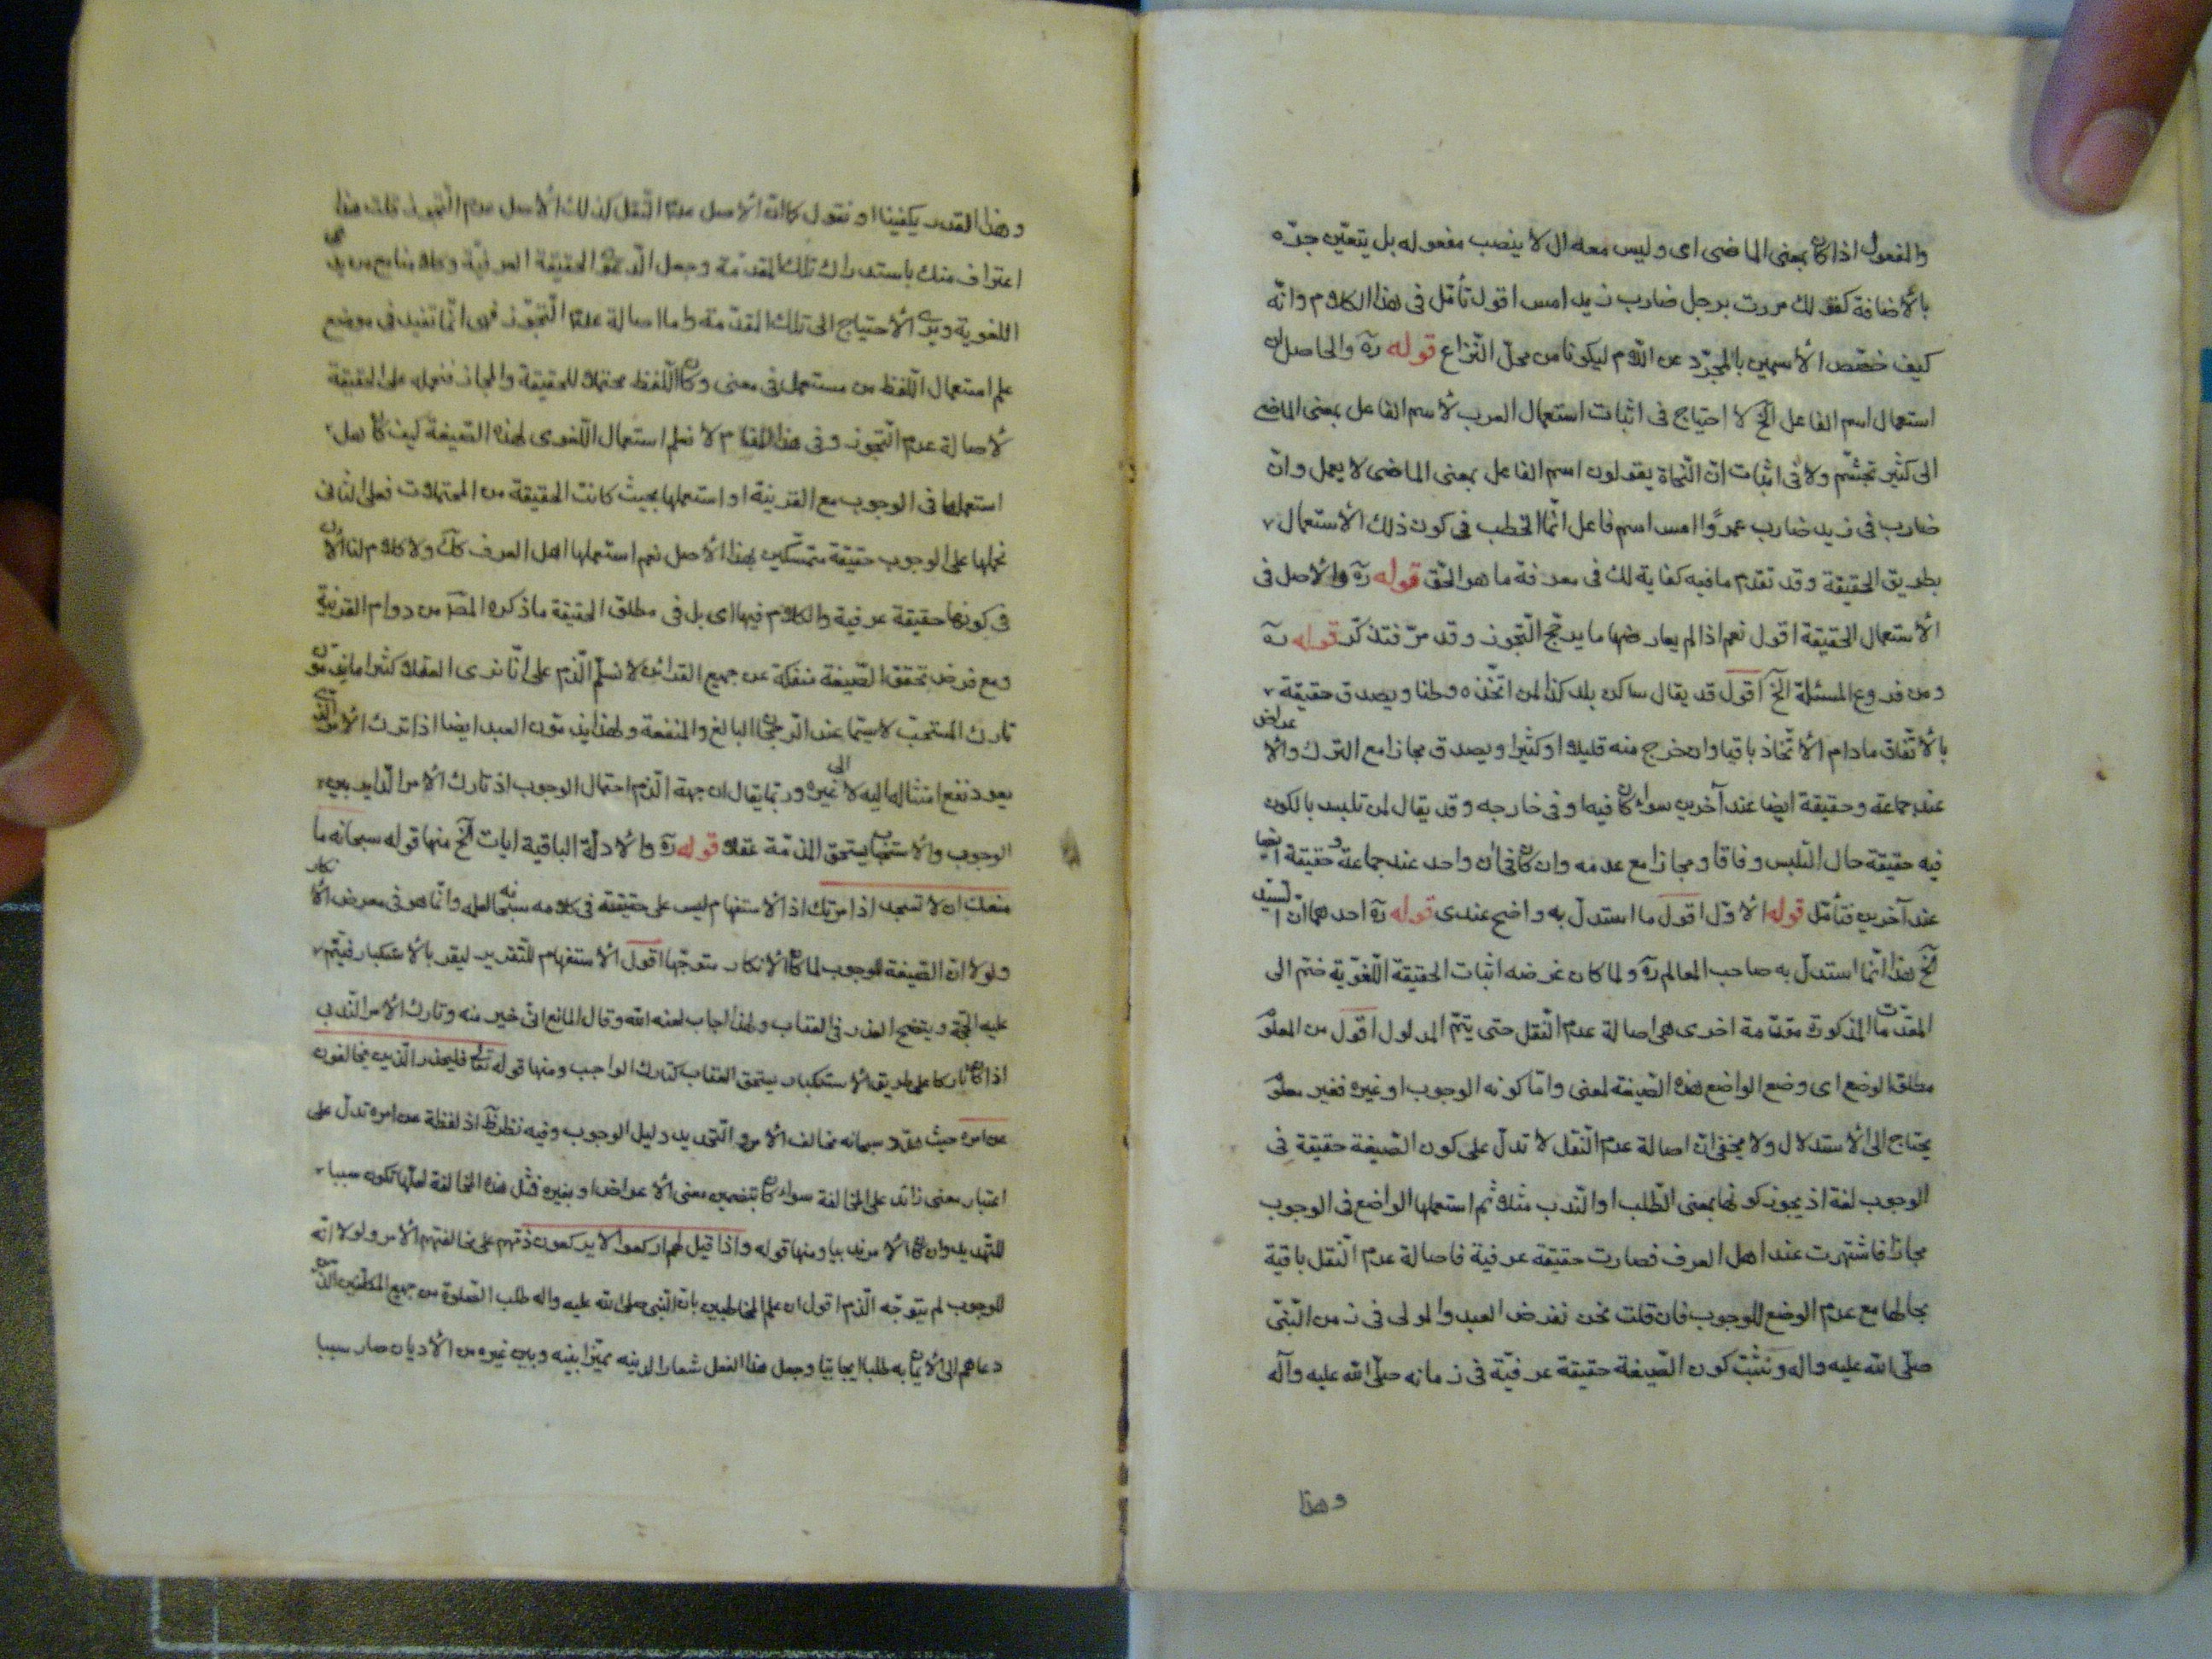 والمفعول اذا كان بمعنى الماضى اى وليس معه ال لا ينصب مفعوله بل يتعيّن جرّه
بالأضافة كقولك مررت برجل ضارب زيد امس اقول تأمّل فى هذا الكلام وانّه
كيف خصّص الأسمين بالمجرّد عن اللّام ليكونا من محلّ النّزاع قوله ره والحاصل ان
استعمال اسم الفاعل الخ لا احتياج فى اثبات استعمال العرب لأسم الفاعل بمعنى الماضى
الى كثير تجشّم ولا فى اثبات انّ النّحاة يقولون اسم الفاعل بمعنى الماضى لا يعمل وانّ
ضارب فى زيد ضارب عمرًوا امس اسم فاعل انّما الخطب فى كون ذلك الأستعمال
بطريق الحقيقة وقد تقدم ما فيه كفاية لك فى معرفة ما هو الحّق قوله ره والأصل فى
الأستعمال الحقيقة اقول نعم اذا لم يعارضها ما يرجّح التّجوز وقد مرّ فتذكّر قوله ره
ومن فروع المسئلة الخ اقول قد يقال ساكن بلد كذا لمن اتّخذه وطنا ويصدق حقيقة
بالأتّفاق مادام الأتّخاذ باقيا وان خرج منه قليلا او كثيرا ويصدق مجازا مع الترك والأعراض
عند جماعة وحقيقة ايضا عند آخرين سواء كان فيه او فى خارجه وقد يقال لمن تلبس بالكون
فيه حقيقة حال التّلبس وفاقا ومجازا مع عدمه وان كان فى ان واحد عند جماعة وحقيقة ايضا
عند آخرين فتأمّل قوله الأوّل اقول ما استدلّ به واضح عندى قوله ره احدهما انّ السّيّد
الخ هذا انّما استدلّ به صاحب المعالم ره ولما كان غرضه اثبات الحقيقة اللّغوّية ختم الى
المقدّمات المذكورة مقدّمة اخرى هى اصالة عدم النّقل حتى يتمّ المدلول اقول من المعلوم
مطلق الوضع اى وضع الواضع هذه الصّيغة لمعنى وامّا كونه الوجوب او غيره فغير معلوم
يحتاج الى الأستدلال ولا يخفى انّ اصالة عدم النّقل لا تدلّ على كون الصّيغة حقيقة فى
الوجوب لغة اذ يجوز كونها بمعنى الطّلب او النّدب مثلا ثم استعملها الواضع فى الوجوب
مجازا فاشتهرت عند اهل العرف فصارت حقيقة عرفية فاصالة عدم النّقل باقية
بحالها مع عدم الوضع للوجوب فان قلت نحن نفرض العبد والمولى فى زمن النّبىّ
صلّى اللّه عليه واله ونثبت كون الصّيغة حقيقة عرفيّة فى زمانه صلّى اللّه عليه وآله
وهذا
وهذا القدر يكفينا او نقول كما انّ الأصل عدم النّقل كذلك الأصل عدم التّجوز قلت هذا
اعتراف منك باستدراك تلك المقدّمة وجعل الدّعوى الحقيقة العرفيّة وكلامنا مع من يدعى
اللغوية ويرى الأحتياج الى تلك المقدّمة واما اصالة عدم التّجوّز فهى انّما تفيد فى موضع
علم استعمال اللّفظ من مستعمل فى معنى وكان اللّفظ محتملا للحقيقة والمجاز فنحمله على الحقيقة
لأصالة عدم التّجوز وفى هذا المقام لا نعلم استعمال اللّغوى لهذه الصّيغة كيف كان هل
استعملها فى الوجوب مع القرينة او استعملها بحيث كانت الحقيقة من المحتملات فعلى الثانى
نحملها على الوجوب حقيقة متمسّكين بهذا الأصل نعم استعملها اهل العرف كك ولا كلام لنا الأن
فى كونها حقيقة عرفية والكلام فيها اى بل فى مطلق الحقيقة ما ذكره المصّ من دوام القرينة
ومع فرض تحقق الصّيغة منفكّة عن جميع القرائن لا نسلّم الذّم على انّا نرى العقلاء كثيرا ما يذمّون
تارك المستحبّ لا سيّما عند الرّجحان البالغ والمنفعة ولهذا يذمّون العبد ايضا اذا ترك الأمر الّذى
يعود نفع امتثاله اليه لا الى غيره وربّما يقال ان جهة الذّم احتمال الوجوب اذ تارك الأمر الدّاير بين
الوجوب والأستحباب يستحق المذمّة عقلا قوله ره والأدلّة الباقية ايات الخ منها قوله سبحانه ما
منعك ان لا تسجد اذ امرتك اذ الأستفهام ليس على حقيقته فى كلامه سبحانه لعلمه وانّما هو فى معرض الأنكار
ولولا انّ الصّيغة للوجوب لما كان الأنكار متوجّها اقول الأستفهام للتّقرير ليقر بالأستكبار فيتّم
عليه الحّجة ويتضح العذر فى العقاب ولهذا اجاب لعنه اللّه وقال المانع انّى خير منه وتارك الأمر النّدبى
اذا كان تاركا على طريق الأستكبار يستحق العقاب كتارك الواجب ومنها قوله تعالى فليحذر الّذين يخالفون
عن امره حيث هدّد سبحانه مخالف الأمر والتّهديد دليل الوجوب وفيه نظر ظ اذ لفظة عن امره تدلّ على
اعتبار معنى زائد على المخالفة سواء كان بتضمين معنى الأعراض او بغيره فمثل هذه المخالفة لعلّها تكون سببا
للتّهديد وان كان الأمر ندبيا ومنها قوله واذا قيل لهم اركعوا لا يركعون ذمّهم على مخالفتهم الأمر ولولا انّه
للوجوب لم يتوجّه الذّم اقول ان علم المخاطبين بانّ النّبى صلى اللّه عليه واله طلب الصّلوة من جميع المكلّفين الّذين
دعاهم الى الأيمان به طلبا ايجابيّا وجعل هذا الفعل شعارا لدينه مميّزا بينه وبين غيره من الأديان صار سببا